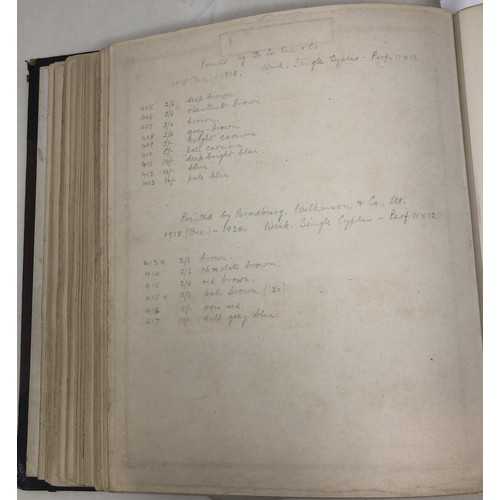 Printed by De La Rue & Co
1915 (Dec) - 1918. Wmk. Single Cypher - Perf. 11 x 12
405 2/6 deep brown
406 2/6 chestnut-brown
407 2/6 brown
408 2/6 grey-brown
409 5/- bright carmine
410 5/- pale carmine
411 10/- deep bright blue
412 10/- blue
413 10/- pale blue
Printed by Bradbury, Wilkinson & Co, Ltd.
1918 (Dec) - 1930. Wmk. Single Cypher - Perf 11 x 12
413a 2/6 brown.
414 2/6 chocolate brown.
415 2/6 red brown.
415a 2/6 pale brown
416 5/- rose red
417 10/- dull grey blue